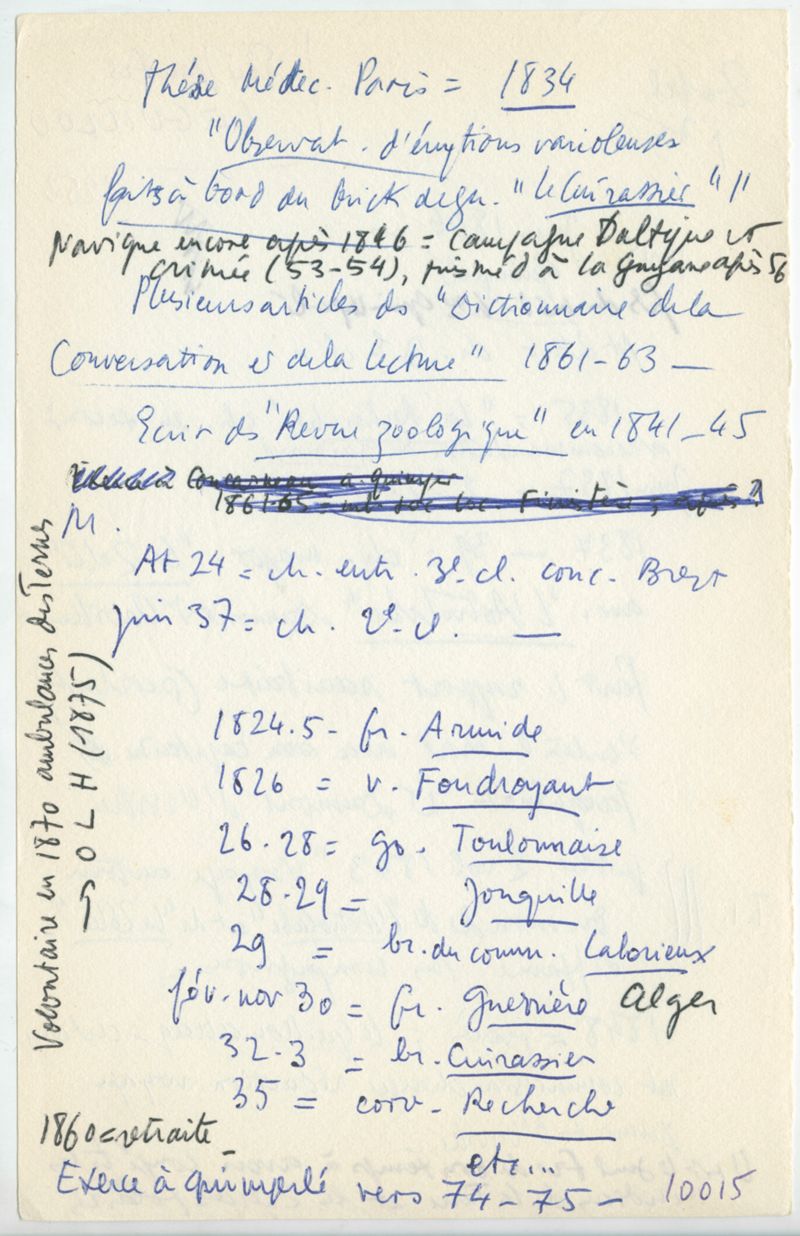 Thèse Médec. Paris = 1834
"Observat. d'éruptions varioleuses
faites à bord du brick de gu. "Le Cuirassier" "
Navigue encore après 1846 = Campagne Baltique et
Crimée (53-54), puis méd à la Guyane après 56
Plusieurs articles ds "Dictionnaire de la
Conversation et de la lecture" 1861-63 —
Ecrit ds "Revue zoologique" en 1841-45
Concarneau à quimper
1861-65 = Finistère ; après ?
M.
At 24 = ch. entr. 3e cl. conc. Brest
juin 37 = ch. 2e cl. —
1824.5 - fr. Armide
1826 = v. Foudroyant
26.28 = go. Toulonnaise
28.29 = Jonquille
29 = br. du comm. Laborieux
fév. nov 30 = fr. Guerrière Alger
32.3 = br. Cuirassier
35 = corv - Recherche
etc...
1860 = retraite
Exerce à quimperlé vers 74-75 - 10015
Volontaire en 1870 ambulances des Ternes
OLH (1875)